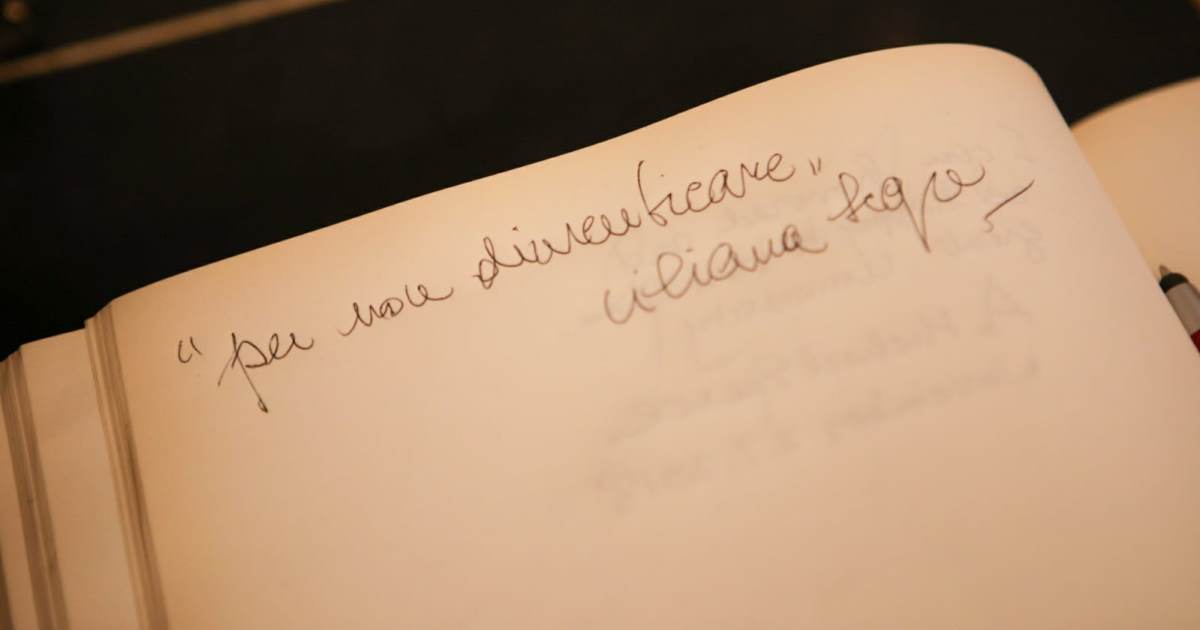 "per non dimenticare"
liliana segre